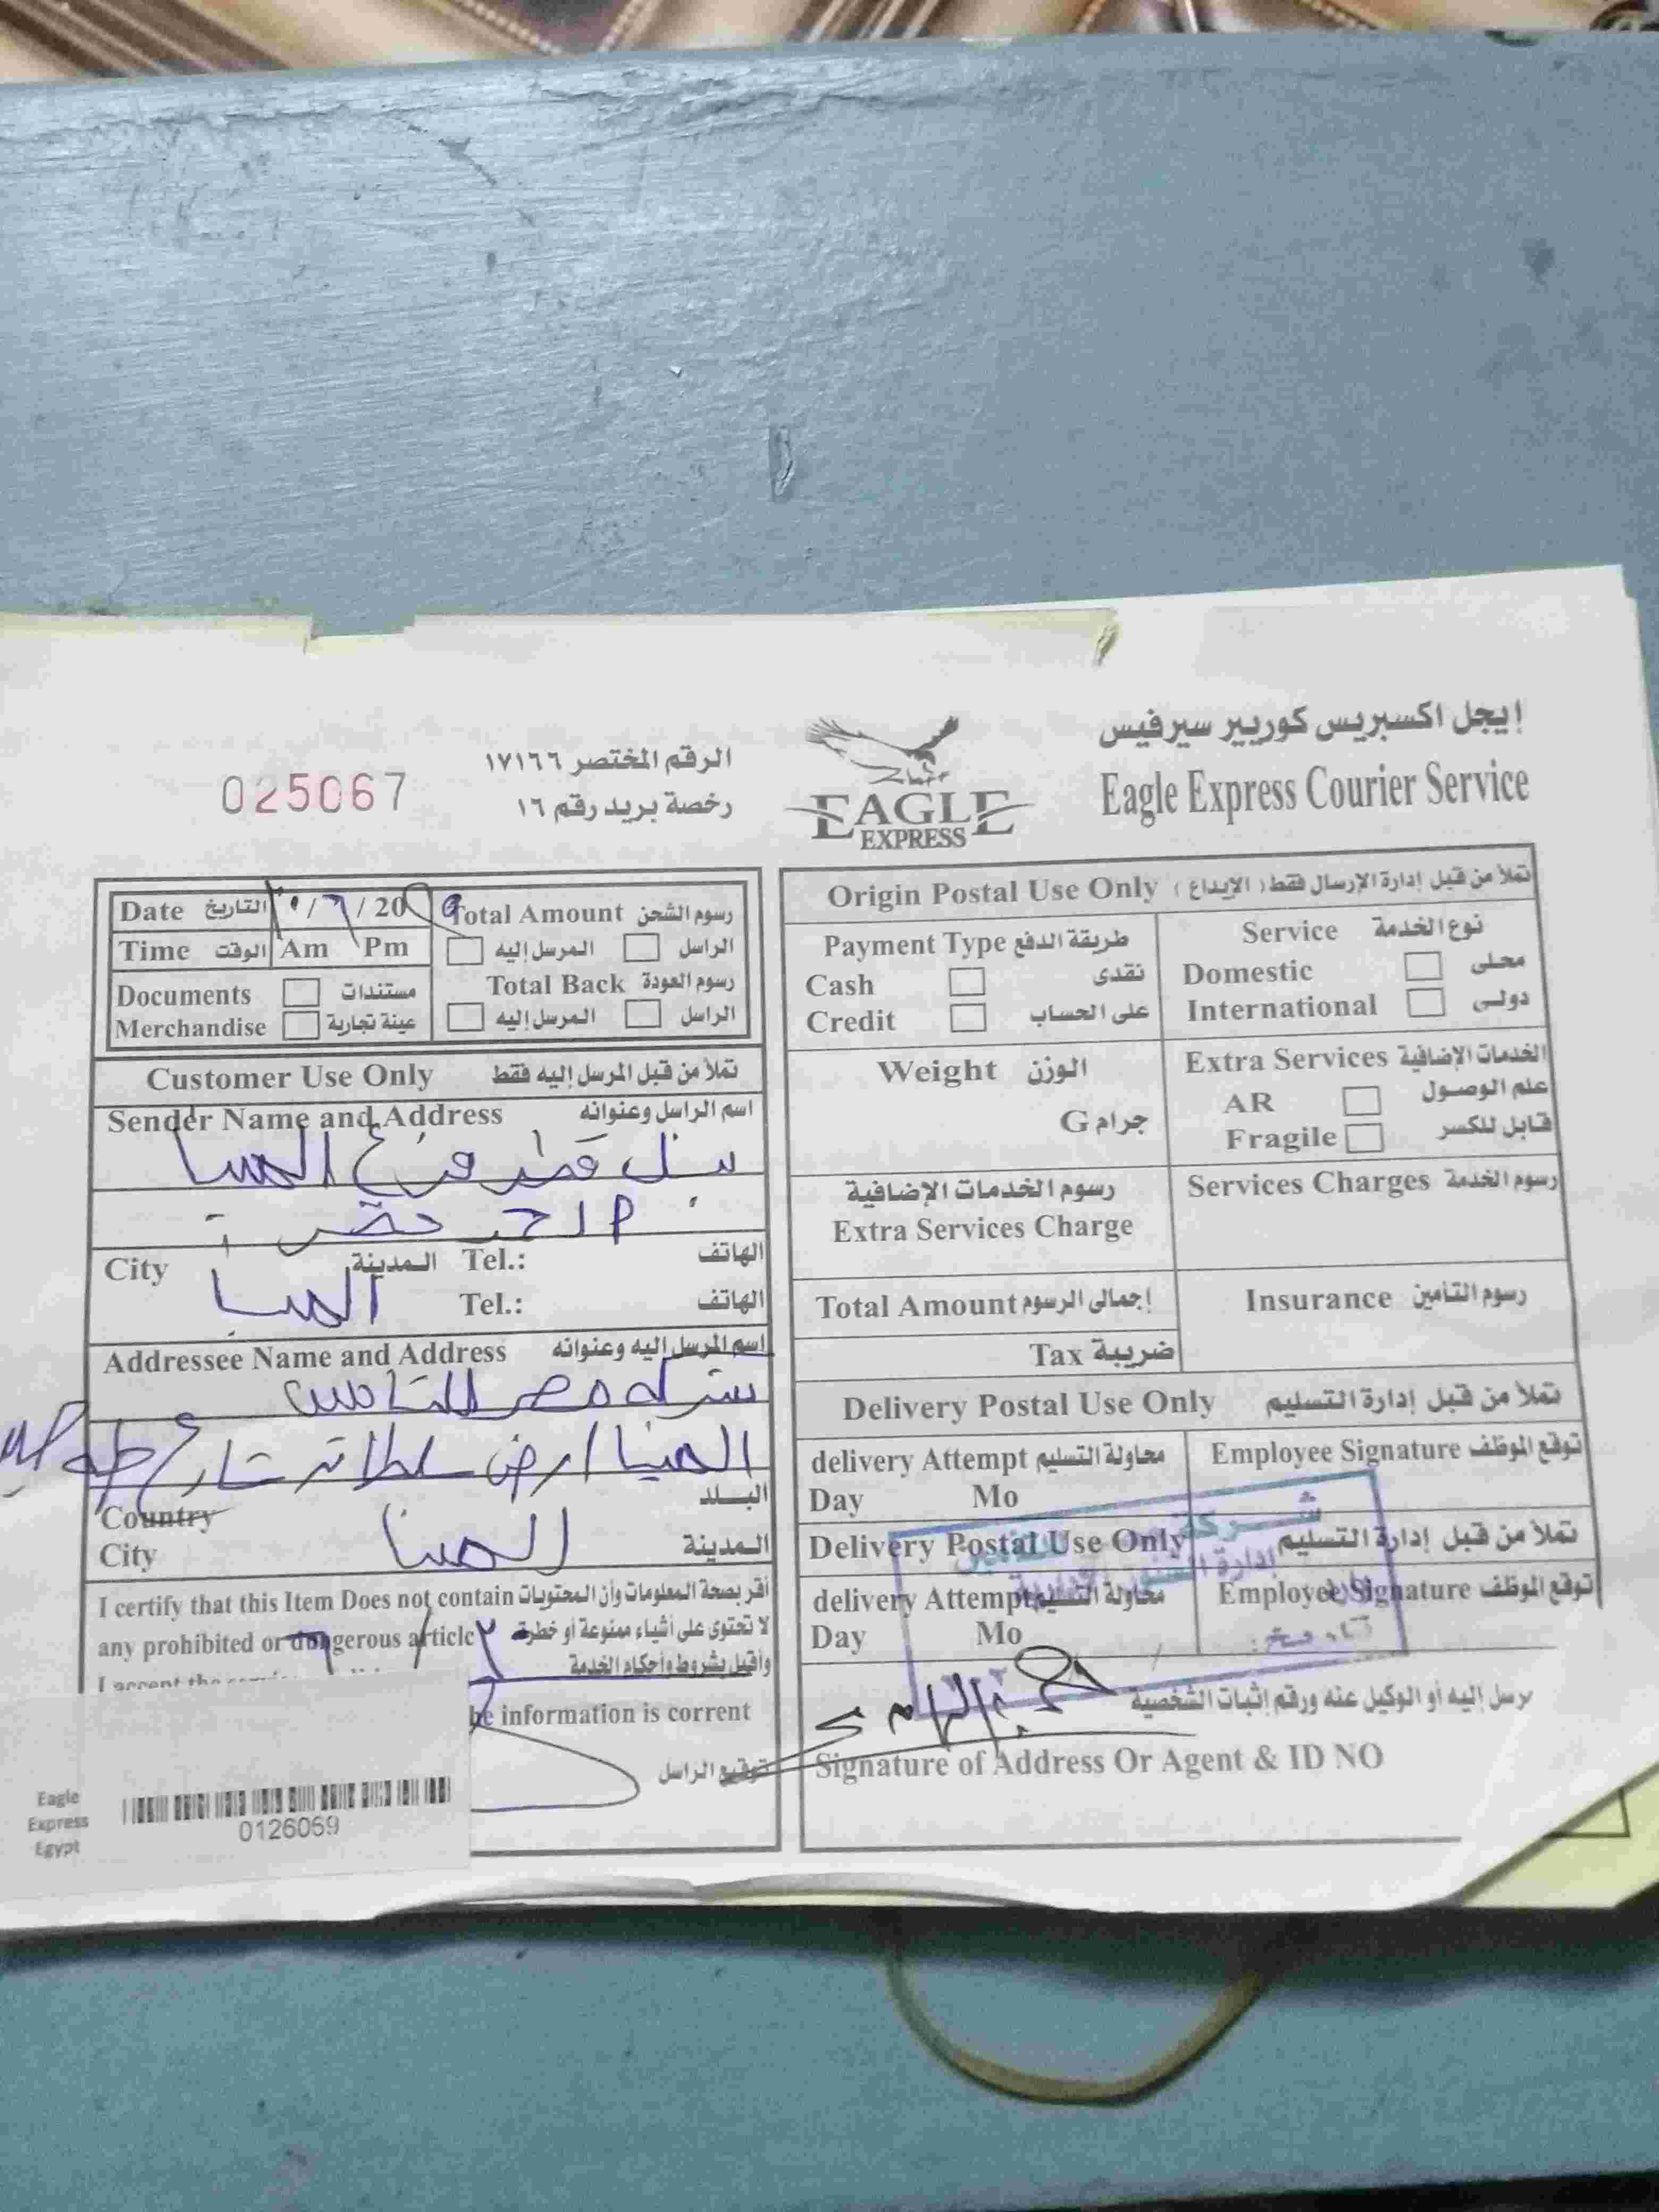 إيجل اكسبريس كوريير سيرفيس
Eagle Express Courier Service
EAGLE
EXPRESS
الرقم المختصر ١٧١٦٦
رخصة بريد رقم ١٦
025067
Date التاريخ / ٦ / 20
Time الوقت Am Pm
Documents مستندات
Merchandise عينة تجارية
Total Amount رسوم الشحن
المرسل إليه الراسل
Total Back رسوم العودة
المرسل إليه الراسل
Customer Use Only تملأ من قبل المرسل إليه فقط
Sender Name and Address اسم الراسل وعنوانه
بنك قطر فرع المنيا
City المدينة Tel.: الهاتف
المنيا
Tel.: الهاتف
Addressee Name and Address اسم المرسل إليه وعنوانه
شركه مصر للتامين
المنيا ارض سلطان شارع طه حسين
Country البلد
City المدينة
المنيا
I certify that this Item Does not contain أقر بصحة المعلومات وأن المحتويات
any prohibited or dangerous article لا تحتوى على أشياء ممنوعة أو خطرة
I accept the وأقبل بشروط وأحكام الخدمة
be information is corrent
توقيع الراسل
Eagle
Express
Egypt
0126059
Origin Postal Use Only تملأ من قبل إدارة الإرسال فقط ( الإيداع )
Payment Type طريقة الدفع
Cash نقدى
Credit على الحساب
Service نوع الخدمة
Domestic محلى
International دولى
Weight الوزن
G جرام
Extra Services الخدمات الإضافية
AR علم الوصول
Fragile قابل للكسر
رسوم الخدمات الإضافية
Extra Services Charge
Services Charges رسوم الخدمة
Total Amount إجمالى الرسوم
Tax ضريبة
Insurance رسوم التأمين
Delivery Postal Use Only تملأ من قبل إدارة التسليم
delivery Attempt محاولة التسليم
Day Mo
Employee Signature توقع الموظف
Delivery Postal Use Only تملأ من قبل إدارة التسليم
delivery Attempt محاولة التسليم
Day Mo
Employee Signature توقع الموظف
شركة
إدارة
يرسل إليه أو الوكيل عنه ورقم إثبات الشخصية
Signature of Address Or Agent & ID NO